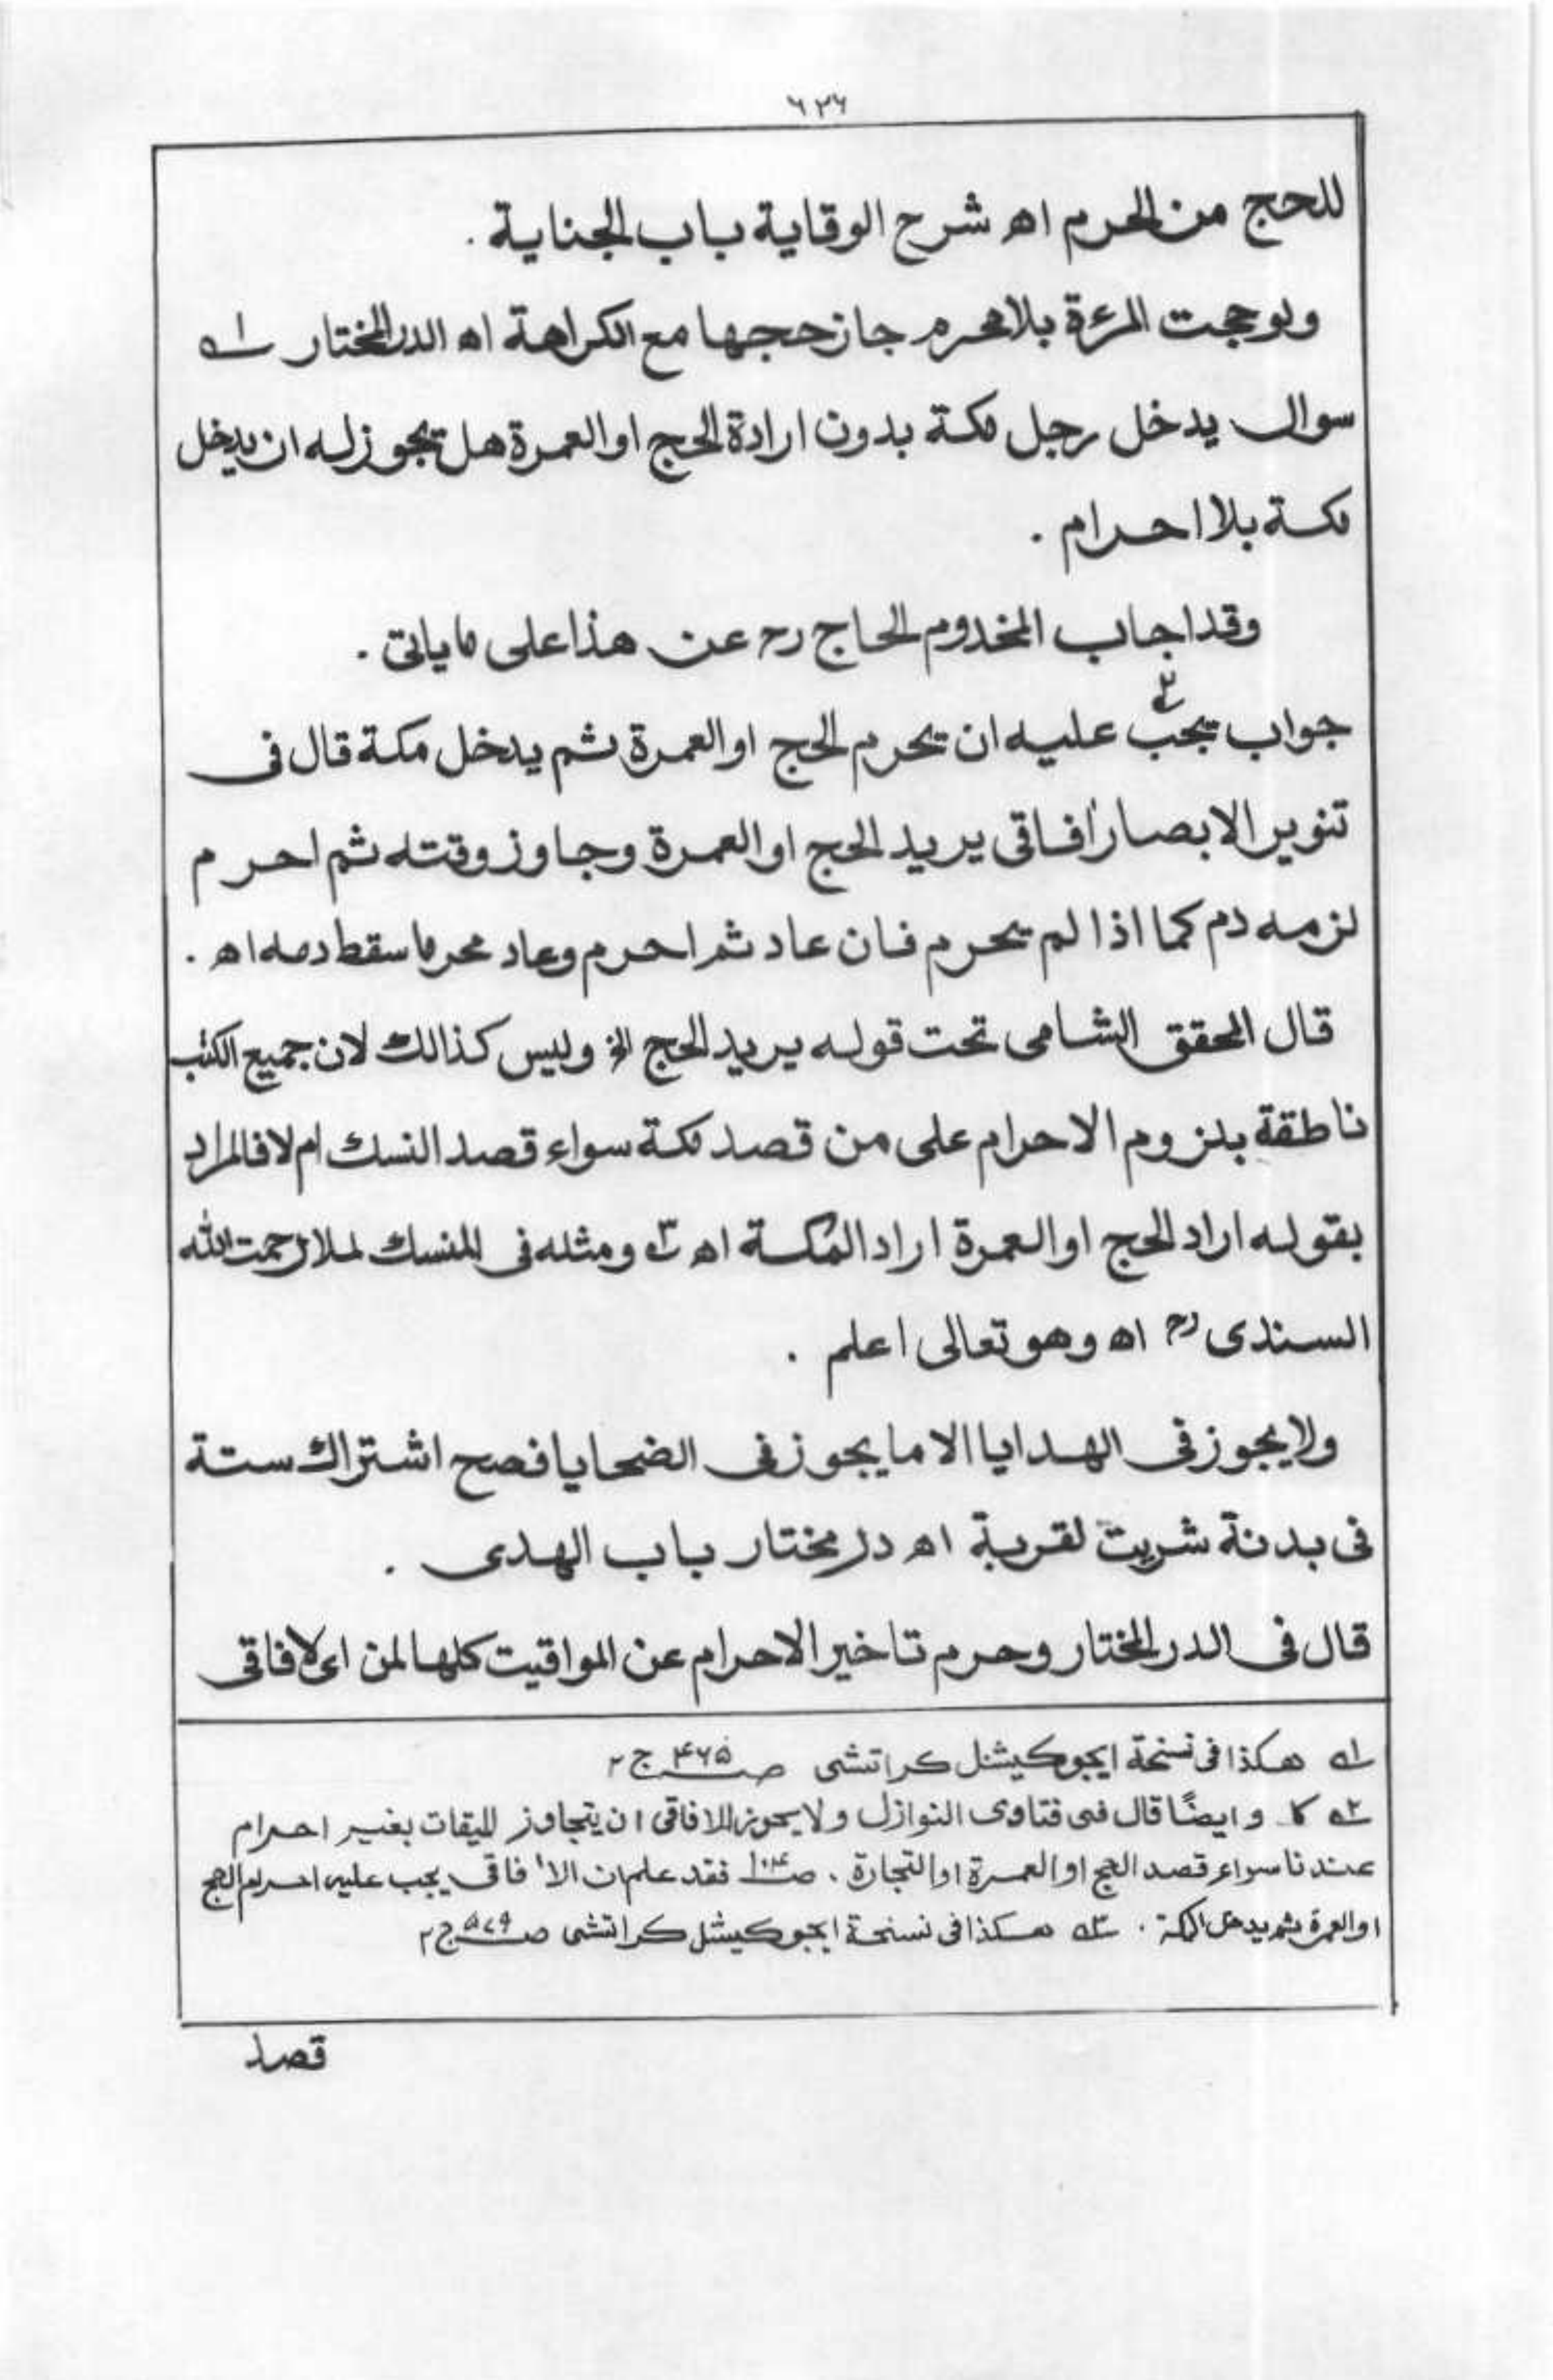 ٦٢٦
للحج من الحرم اه شرح الوقاية باب الجناية .
ولو حجت المرءة بلا محرم جاز حجها مع الكراهة اه الدر المختار ١ه
سوال يدخل رجل مكة بدون ارادة الحج او العمرة هل يجوز له ان يدخل
مكة بلا احرام .
وقد اجاب المخدوم الحاج رح عن هذا على ما ياتى .
جواب يجب٢ عليه ان يحرم الحج او العمرة ثم يدخل مكة قال فى
تنوير الابصار افاقى يريد الحج او العمرة وجاوز وقته ثم احرم
لزمه دم كما اذا لم يحرم فان عاد ثم احرم وعاد محرما سقط دمه اه .
قال المحقق الشامى تحت قوله يريد الحج الخ وليس كذالك لان جميع الكتب
ناطقة بلزوم الاحرام على من قصد مكة سواء قصد النسك ام لا فالمراد
بقوله اراد الحج او العمرة اراد المكة اه ٣ه ومثله فى المنسك لملا رحمت الله
السندى رح اه وهو تعالى اعلم .
ولا يجوز فى الهدايا الا ما يجوز فى الضحايا فصح اشتراك ستة
فى بدنة شريت لقربة اه در مختار باب الهدى .
قال فى الدر المختار وحرم تاخير الاحرام عن المواقيت كلها لمن اى لافاقى
١ه هكذا فى نسخة ايجوكيشنل كراتشى صـ ۴۶۵ ج ٢
٢ه وايضًا قال فى فتاوى النوازل ولا يجوز للافاقى ان يتجاوز الميقات بغير احرام
عندنا سواء قصد الحج او العمرة او التجارة . صـ فقد علم ان الافاقى يجب عليه احرام الحج
او العمرة ثم يدخل المكة . ٣ه هكذا فى نسخة ايجوكيشنل كراتشى صـ ۵۷۹ ج ٢
قصد